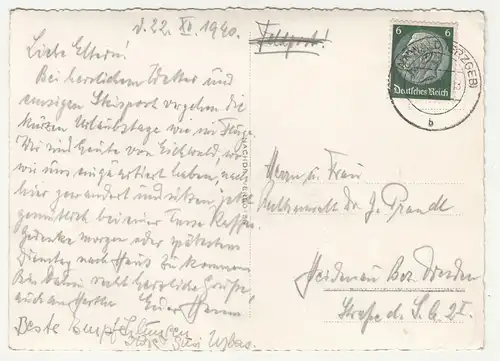 d. 22. XII. 1940.
Feldpost!
Liebe Eltern!
Bei herrlichem Wetter und
Skisport vergehen die
kurzen Urlaubstage wie im Fluge.
Wir sind heute von Eichwald, wo
wir uns einquartiert haben, nach
hier gewandert und sitzen jetzt
gemütlich bei einer Tasse Kaffee.
Gedenke morgen oder spätestens
Dienstag nach Haus zu kommen.
Bis dahin recht herzliche Grüße
auch an Euer
Beste
6 6
Deutsches Reich
(ERZGEB)
b
Herrn u. Frau
Dr. J.
Heidenau Bez. Dresden
Straße d. S.A. 2I.